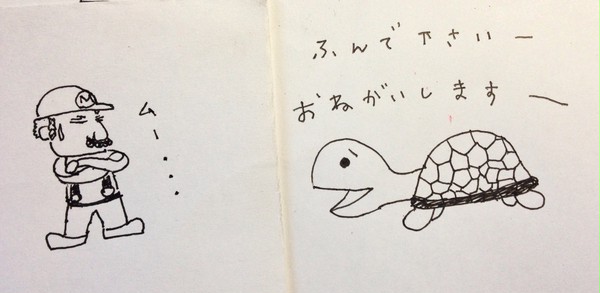 M
ムー...
ふんで下さいー
おねがいします〜